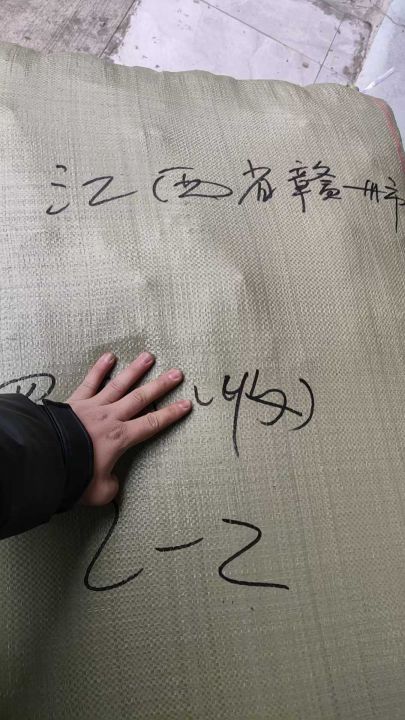 江西省赣州市
(收)
2-2